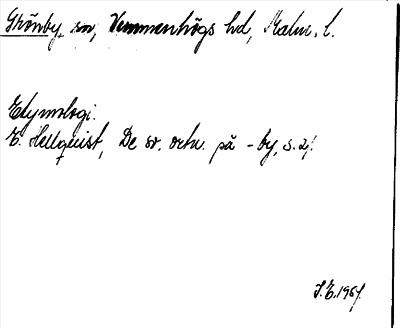 Grönby, sn, Vemmenhögs hd, Malm. l.
Etymologi.
E. Hellquist, De sv. ortn. på -by, s. 21.
J.E. 1967.